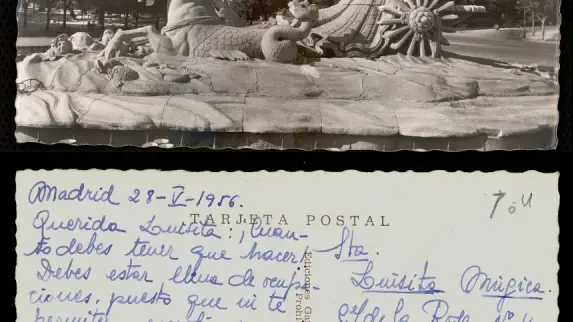 Madrid 28-V-1956.
TARJETA POSTAL
Querida Luisita: ¡Cuan-
to debes tener que hacer!
Debes estar llena de ocupa-
ciones, puesto que ni te
Sta.
Luisita Múgica.
de la Rosa
Ediciones
Prohi